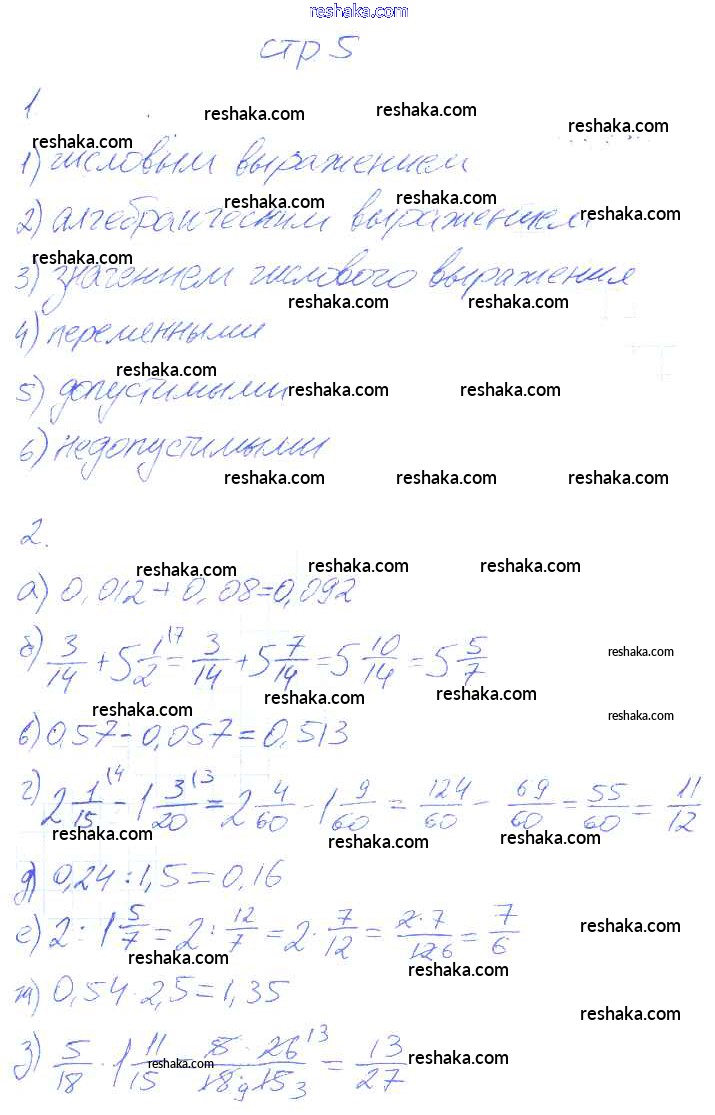 reshaka.com
стр 5
1.
reshaka.com reshaka.com reshaka.com
reshaka.com
1) числовым выражением
reshaka.com reshaka.com reshaka.com
2) алгебраическим выражением
reshaka.com
3) значением числового выражения
reshaka.com reshaka.com
4) переменными
reshaka.com
5) допустимыми reshaka.com reshaka.com
6) недопустимыми
reshaka.com reshaka.com reshaka.com
2.
reshaka.com reshaka.com reshaka.com
а) 0,012 + 0,08 = 0,092
б) 3/14 + 5 1/2 (7 = 3/14 + 5 7/14 = 5 10/14 = 5 5/7 reshaka.com
reshaka.com reshaka.com reshaka.com
в) 0,57 - 0,057 = 0,513 reshaka.com
г) 2 1/15 (4 - 1 3/20 (3 = 2 4/60 - 1 9/60 = 124/60 - 69/60 = 55/60 = 11/12
reshaka.com reshaka.com reshaka.com
д) 0,24 : 1,5 = 0,16
е) 2 : 1 5/7 = 2 : 12/7 = 2 · 7/12 = 2·7/12 6 = 7/6 reshaka.com
reshaka.com reshaka.com
ж) 0,54 · 2,5 = 1,35
reshaka.com
з) 5/18 · 1 11/15 = 5 · 26 13/18 9 15 3 = 13/27
reshaka.com reshaka.com